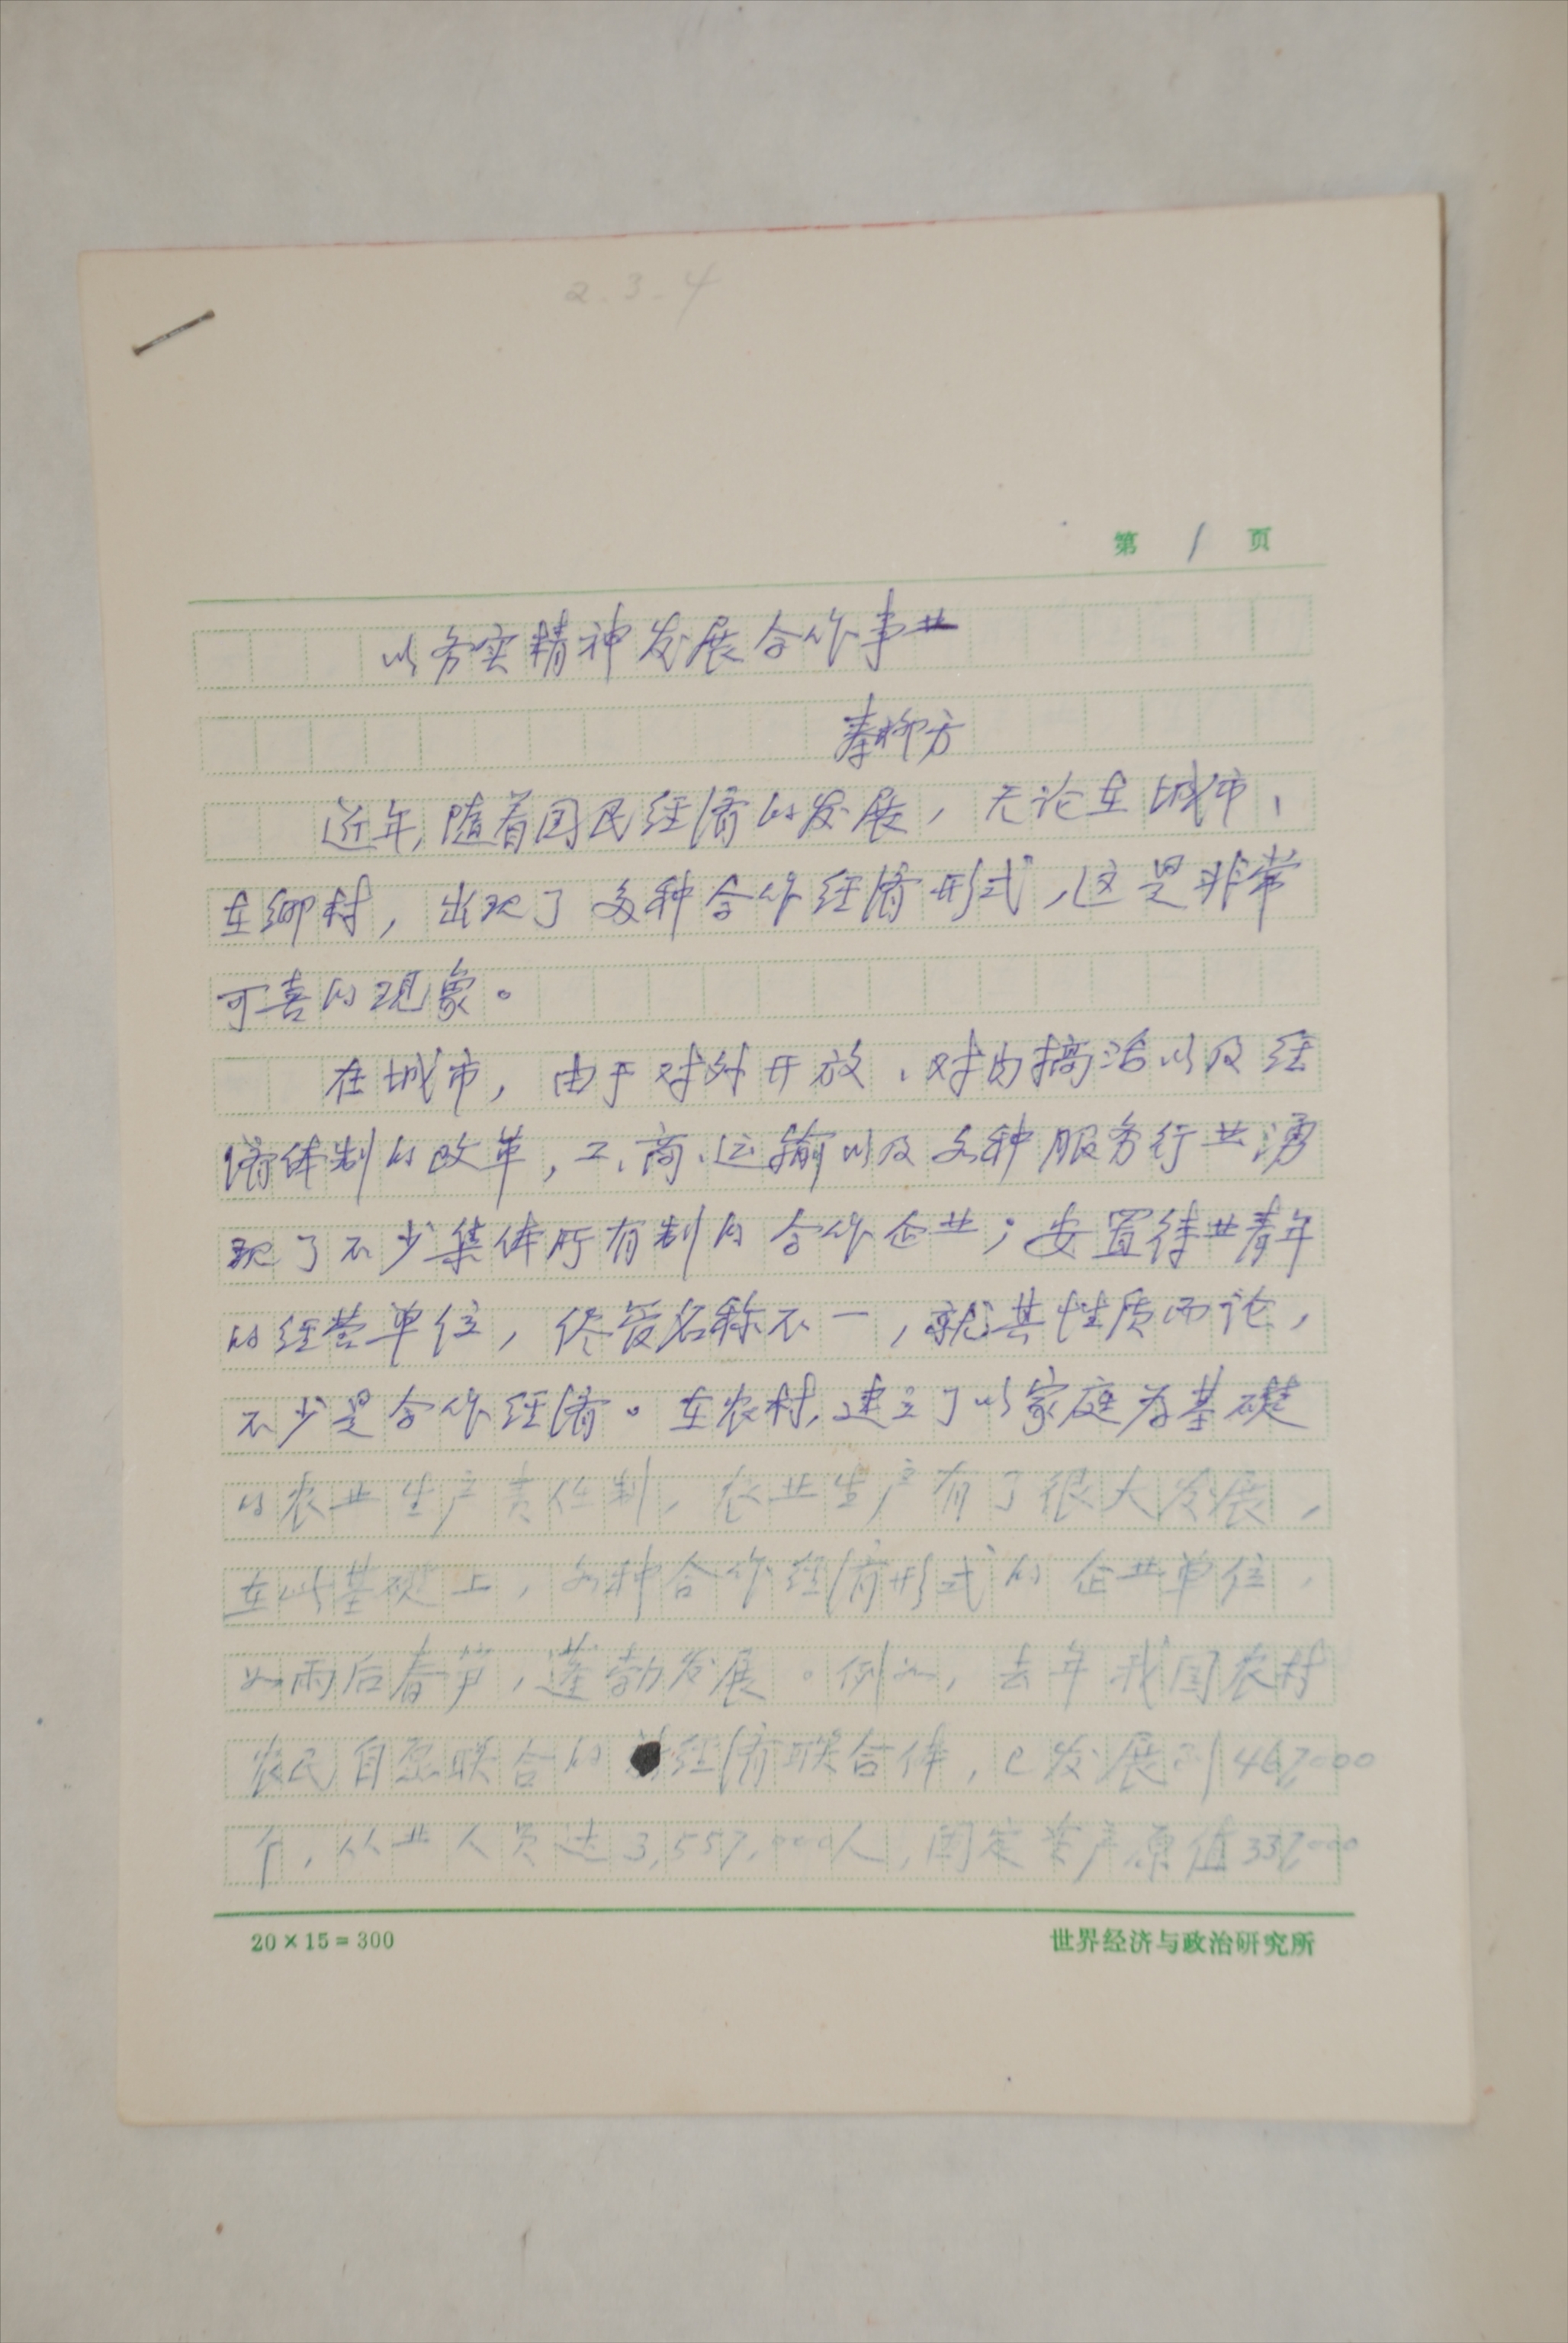 2.3.4
第 1 页
以务实精神发展合作事业
秦柳方
近年,随着国民经济的发展,无论在城市、
在乡村,出现了多种合作经济形式,这是非常
可喜的现象。
在城市,由于对外开放、对内搞活以及经
济体制的改革,工、商、运输以及各种服务行业涌
现了不少集体所有制的合作企业;安置待业青年
的经营单位,尽管名称不一,就其性质而论,
不少是合作经济。在农村,建立了以家庭为基礎
的农业生产责任制,农业生产有了很大发展,
在此基础上,各种合作经济形式的企业单位,
如雨后春笋,蓬勃发展。例如,去年我国农村
农民自愿联合的经济联合体,已发展到467,000
个,从业人员达3,557,000人,固定资产原值337,000
20×15=300
世界经济与政治研究所